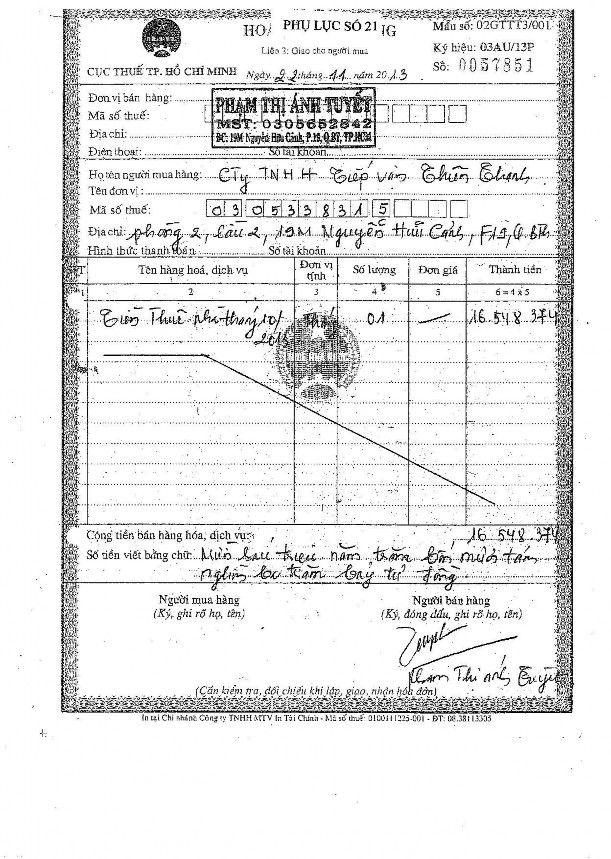 HOÁ PHỤ LỤC SỐ 21 NG
Mẫu số: 02GTTT3/001
Liên 2: Giao cho người mua
Ký hiệu: 03AU/13P
CỤC THUẾ TP. HỒ CHÍ MINH
Ngày 22 tháng 11 năm 2013
Số: 0057851
Đơn vị bán hàng:
PHẠM THỊ ÁNH TUYẾT
Mã số thuế:
MST: 0305652842
Địa chỉ:
ĐC: 19M Nguyễn Hữu Cảnh, P.19, Q.BT, TP.HCM
Điện thoại: Số tài khoản
Họ tên người mua hàng: CTy TNHH Tiếp Vận Thiên Thanh
Tên đơn vị:
Mã số thuế: 0305338315
Địa chỉ: phòng 2, lầu 2, 19M Nguyễn Hữu Cảnh, F19, Q.BTh
Hình thức thanh toán: Số tài khoản
TT Tên hàng hoá, dịch vụ Đơn vị tính Số lượng Đơn giá Thành tiền
1 2 3 4 5 6 = 4 x 5
Tiền Thuê nhà tháng 10/2013 Tháng 01 — 16.548.374
Cộng tiền bán hàng hóa, dịch vụ: 16.548.374
Số tiền viết bằng chữ: Mười sáu triệu năm trăm bốn mươi tám
nghìn ba trăm bảy tư đồng
Người mua hàng Người bán hàng
(Ký, ghi rõ họ, tên) (Ký, đóng dấu, ghi rõ họ, tên)
Phạm Thị Ánh Tuyết
(Cần kiểm tra, đối chiếu khi lập, giao, nhận hóa đơn)
In tại Chi nhánh Công ty TNHH MTV In Tài Chính - Mã số thuế: 0100111225-001 - ĐT: 08.38113305